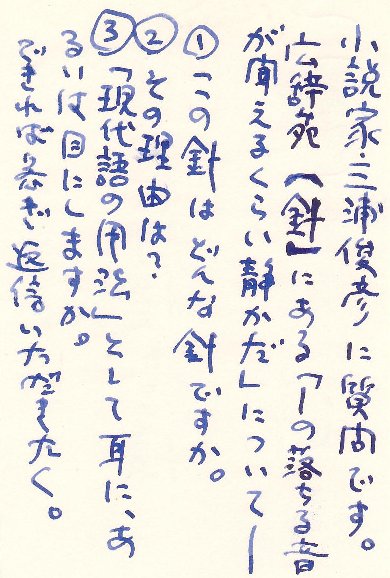 小説家・三浦俊彦に質問です。
広辞苑「針」にある「―の落ちる音
が聞えるくらい静かだ」について―
①この針はどんな針ですか。
②その理由は？
③「現代語の用法」として耳に、あ
るいは目にしますか。
できれば急ぎ返信いただきたく。